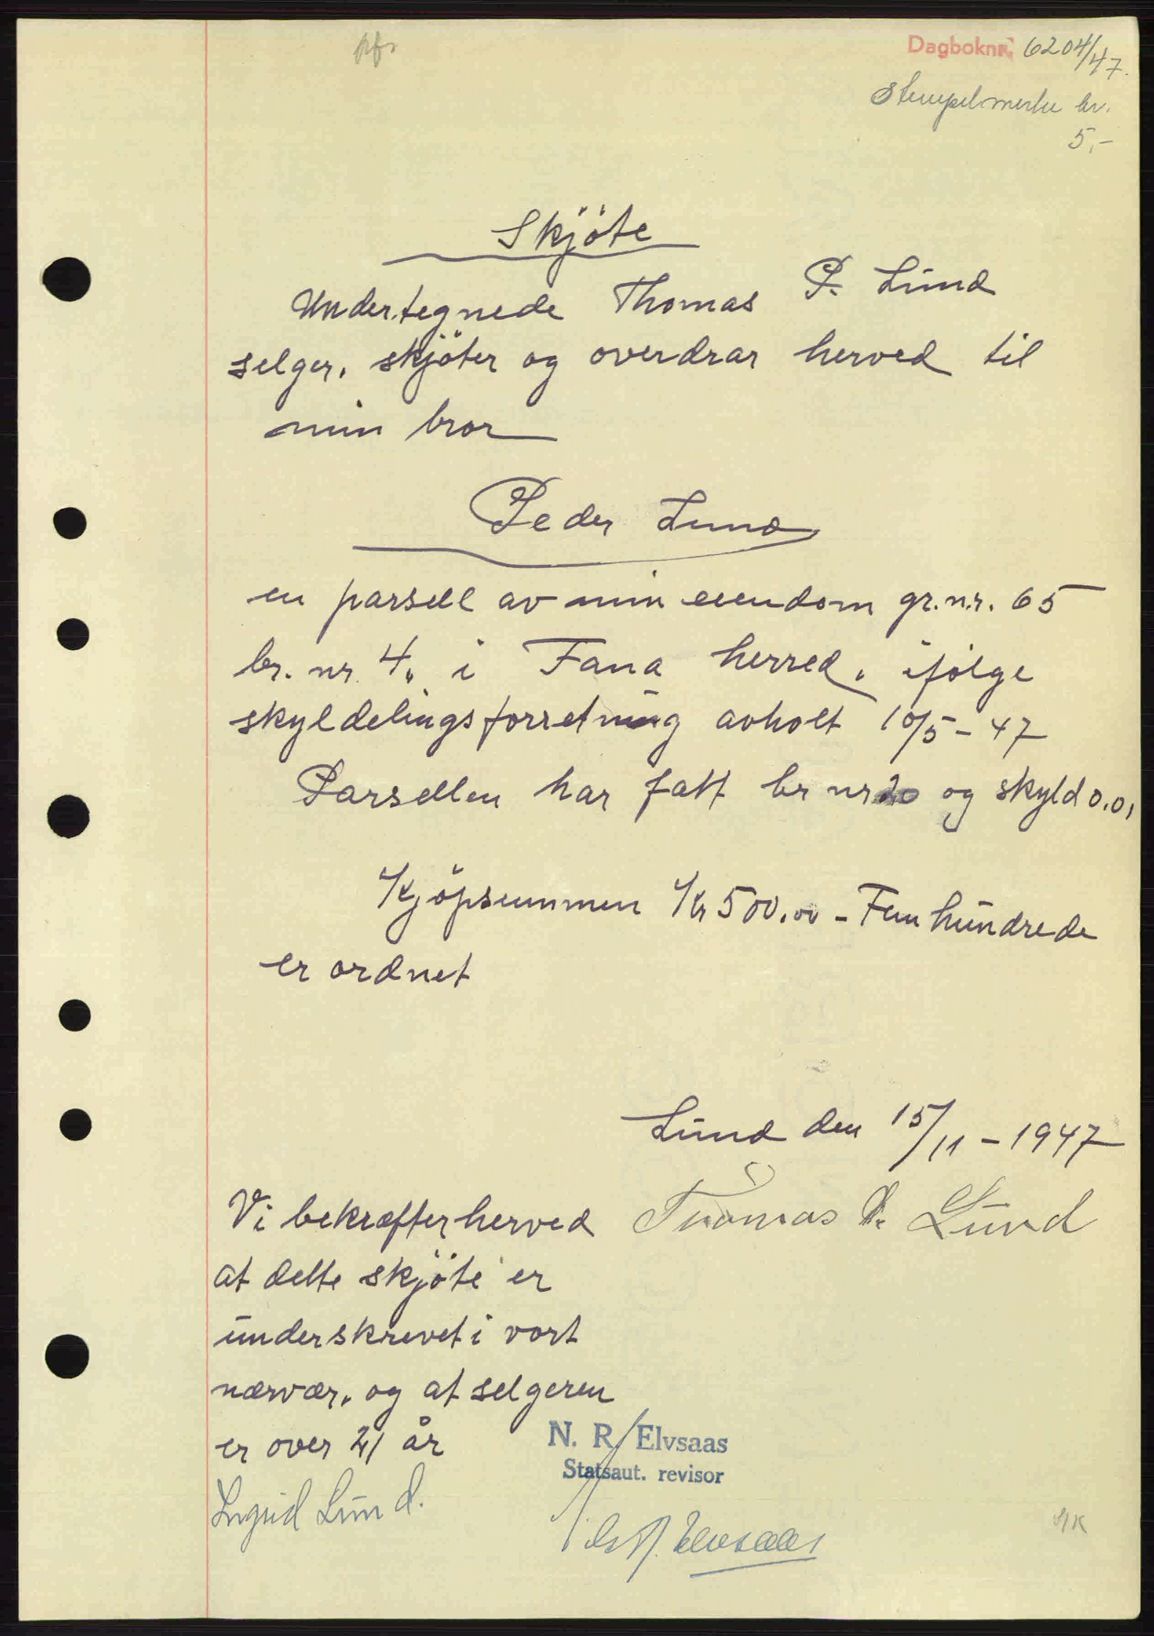 Dagboknr. 6204/47.
Stempelmerke kr.
5,-
Skjöte
Undertegnede Thomas P. Lund
selger, skjöter og overdrar herved til
min bror
Peder Lund
en parsell av min eiendom gr.nr. 65
br. nr 4. i Fana herred, ifølge
skyldelingsforretning avholt 10/5 - 47
Parsellen har fått br nr 20 og skyld 0.01
Kjöpsummen Kr 500.00 - Fem hundrede
er ordnet
Lund den 15/11 - 1947
Thomas P. Lund
Vi bekræfter herved
at dette skjöte er
underskrevet i vort
nærvær, og at selgeren
er over 21 år
Ingrid Lund.
N. R. Elvsaas
Statsaut. revisor
Elvsaas